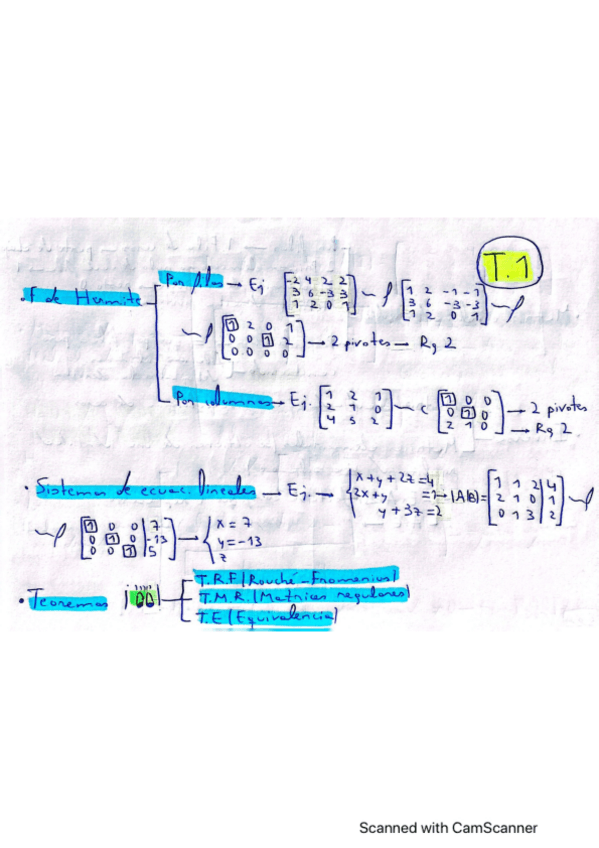 T.1
• F de Hermite
Por filas → Ej [-2 4 2 2 / 3 6 -3 3 / 1 2 0 1] ~f [1 2 -1 -1 / 3 6 -3 -3 / 1 2 0 1] ~f
~f [1 2 0 1 / 0 0 1 2 / 0 0 0 0] → 2 pivotes → Rg 2
Por columnas → Ej. [1 2 1 / 2 1 0 / 4 5 2] ~c [1 0 0 / 0 1 0 / 2 1 0] → 2 pivotes
→ Rg 2
• Sistemas de ecuac. lineales → Ej. → { x+y+2z=4 / 2x+y =1 / y+3z=2 → (A|B)= [1 1 2|4 / 2 1 0|1 / 0 1 3|2] ~f
~f [1 0 0|7 / 0 1 0|-13 / 0 0 1|5] → { x=7 / y=-13 / z
• Teoremas
T.R.F (Rouché-Fromenius)
T.M.R. (Matrices regulares)
T.E (Equivalencia)
Scanned with CamScanner